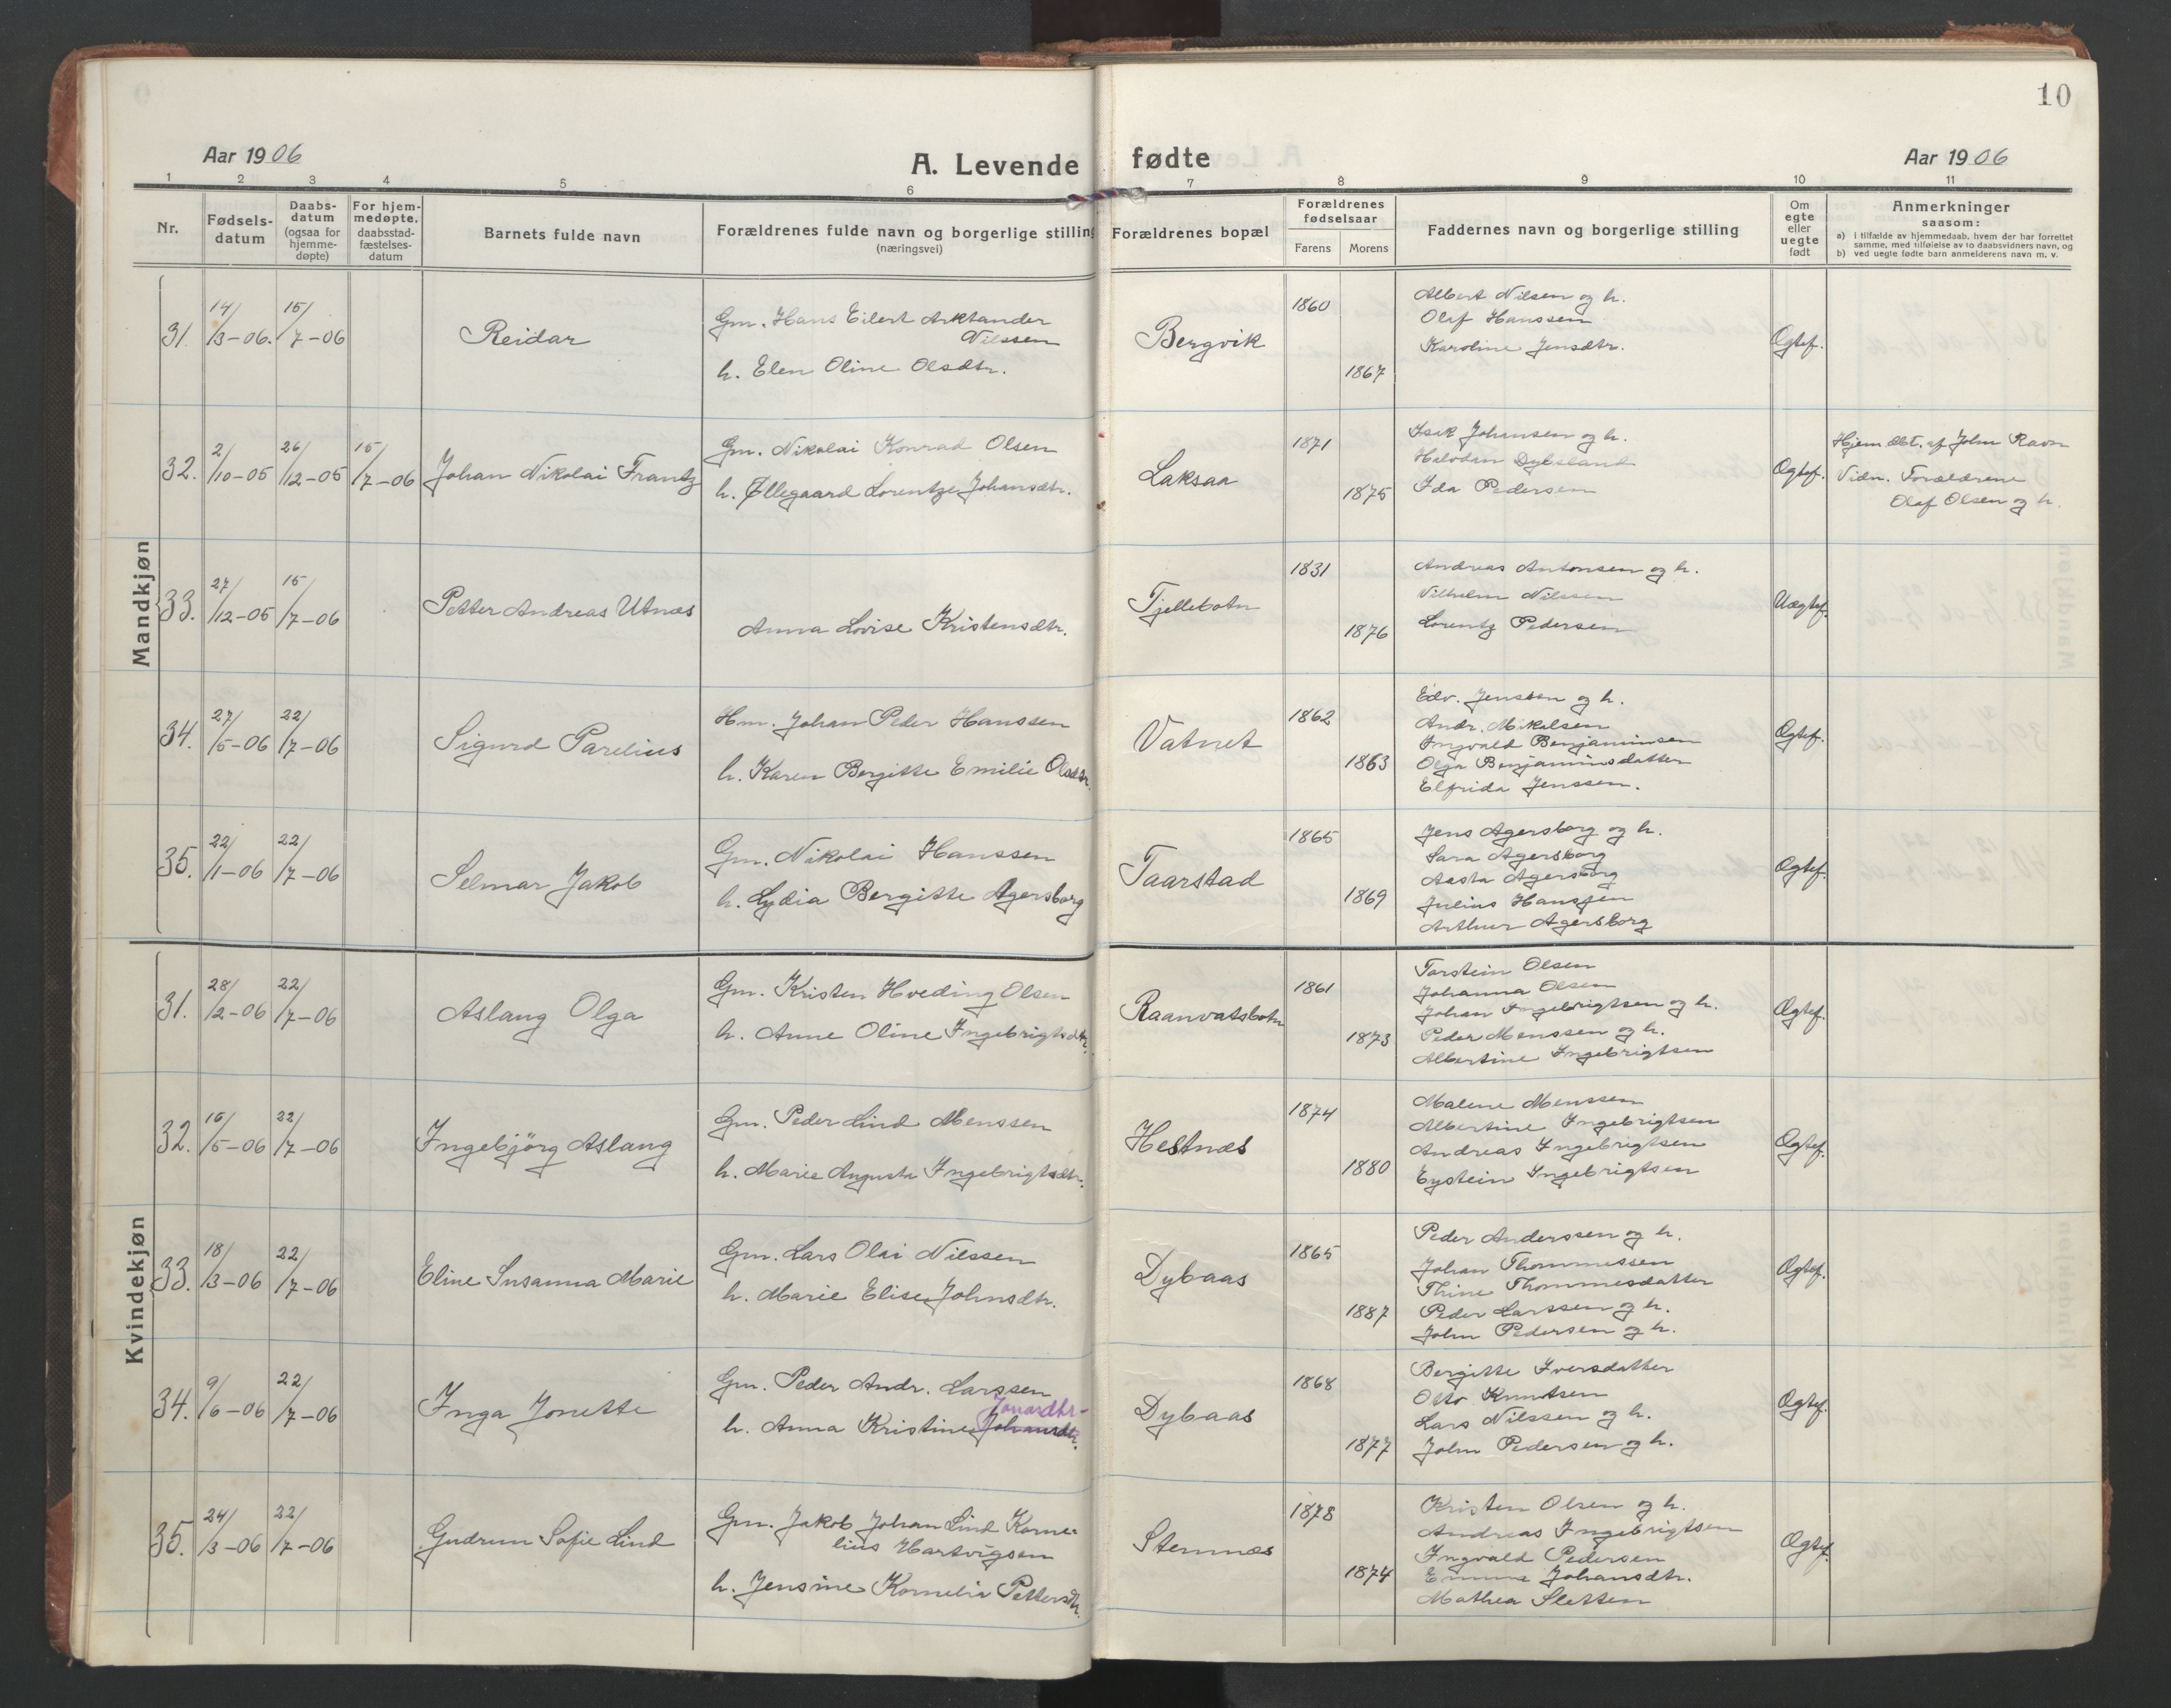 10
Aar 1906
A. Levende fødte
Aar 1906
1 2 3 4 5 6 7 8 9 10 11
Nr.
Fødsels-
datum
Daabs-
datum
(ogsaa for
hjemme-
døpte)
For hjem-
medøpte,
daabsstad-
fæstelses-
datum
Barnets fulde navn
Forældrenes fulde navn og borgerlige stilling
(næringsvei)
Forældrenes bopæl
Forældrenes
fødselsaar
Farens Morens
Faddernes navn og borgerlige stilling
Om
egte
eller
uegte
født
Anmerkninger
saasom:
a) i tilfælde av hjemmedaab, hvem der har forrettet
samme, med tilføielse av to daabsvidners navn, og
b) ved uegte fødte barn anmelderens navn m. v.
Mandkjøn
31. 14/3-06. 15/7-06
Reidar
Gm. Hans Eilert Arktander
Nilssen
h. Elen Oline Olsdtr.
Bergvik
1860
1867
Albert Nilsen og h.
Olaf Hanssen
Karoline Jensdtr.
Ægtef.
32. 2/10-05 26/12-05 15/7-06
Johan Nikolai Frantz
Gm. Nikolai Konrad Olsen
h. Øllegaard Lorentze Johansdtr.
Laksaa
1871
1875
Isak Johansen og h.
Halvdan Dybsland
Ida Pedersen
Ægtef.
Hjem.dbt. af John Ravn
Vidn. Forældrene
Olaf Olsen og h.
33. 27/12-05 15/7-06
Petter Andreas Utnæs
Anna Lovise Kristensdtr.
Tjellebotn
1831
1876
Andreas Antonsen og h.
Vilhelm Nilssen
Lorentz Pedersen
Uægtef.
34. 27/5-06 22/7-06
Sigurd Parelius
Hm. Johan Peder Hanssen
h. Karen Bergitte Emilie Olsdtr.
Vatnet
1862
1863
Edv. Jenssen og h.
Andr. Mikalsen
Ingvald Benjaminsen
Olga Benjaminsdatter
Elfrida Jenssen.
Ægtef.
35. 22/1-06 22/7-06
Selmar Jakob
Gm. Nikolai Hanssen
h. Lydia Bergitte Agersborg
Taarstad
1865
1869
Jens Agersborg og h.
Sara Agersborg
Aasta Agersborg
Julius Hanssen
Arthur Agersborg
Ægtef.
Kvindekjøn
31. 28/2-06 22/7-06
Aslaug Olga
Gm. Kristen Hveding Olsen
h. Anne Oline Ingebrigtsdtr.
Raanvatsbotn
1861
1873
Torstein Olsen
Johanna Olsen
Johan Ingebrigtsen og h.
Peder Menssen og h.
Albertine Ingebrigtsen
Ægtef.
32. 16/5-06 22/7-06
Ingebjörg Aslaug
Gm. Peder Lind Menssen
h. Marie Augusta Ingebrigtsdtr.
Hestnæs
1874
1880
Malene Menssen
Albertine Ingebrigtsen
Andreas Ingebrigtsen
Eystein Ingebrigtsen
Ægtef.
33. 18/3-06 22/7-06
Eline Susanna Marie
Gm. Lars Olai Nilssen
h. Marie Elise Johnsdtr.
Dybaas
1865
1887
Peder Anderssen og h.
Johan Thommessen
Thine Thommesdatter
Peder Larssen og h.
John Pedersen og h.
Ægtef.
34. 9/6-06 22/7-06
Inga Jonette
Gm. Peder Andr. Larssen
Jonasdtr-
h. Anna Kristine Johansdtr.
Dybaas
1868
1877
Bergitte Iversdatter
Otto Knudtsen
Lars Nilssen og h.
John Pedersen og h.
Ægtef.
35. 24/3-06 22/7-06
Gudrun Sofie Lind
Gm. Jakob Johan Lind Korne-
lius Hartvigsen
h. Jensine Kornelie Pettersdtr.
Stemnæs
1878
1874
Kristen Olsen og h.
Andreas Ingebrigtsen
Ingvald Pedersen
Emma Johansdtr.
Mathea Sletten
Ægtef.